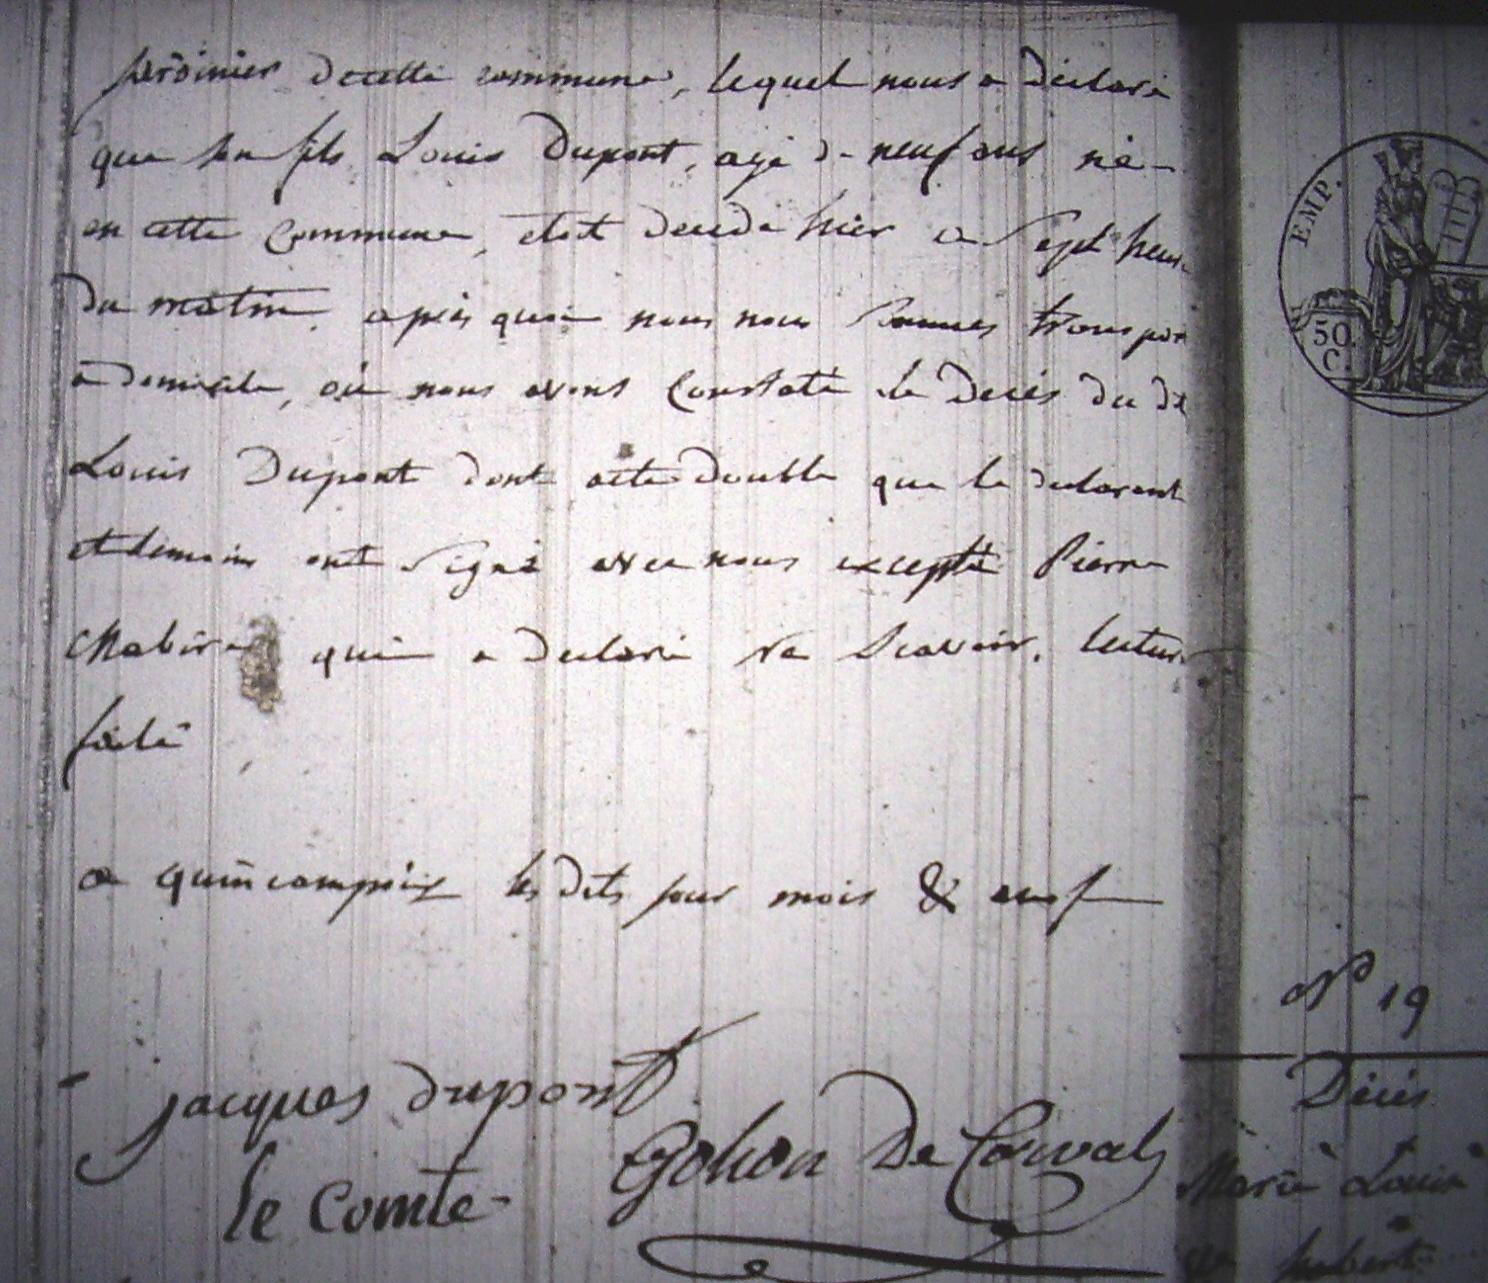 decette commune, lequel nous a déclaré
que son fils Louis Dupont, agé de neuf ans né
en cette Commune, etoit decedé hier a Sept heur
du matin, après quoi nous nous Sommes transpor
a domicile, où nous avons Constaté le Decès du dt
Louis Dupont dont acte double que le declarant
et temoins ont Signé avec nous excepté Pierre
Mabire qui a declaré ne Scavoir, lecture
faite
les dits jour mois & an
jacques dupont
le comte
Gohon De Corval
EMP.
50
C.
N° 19
Décès
Marie Louise